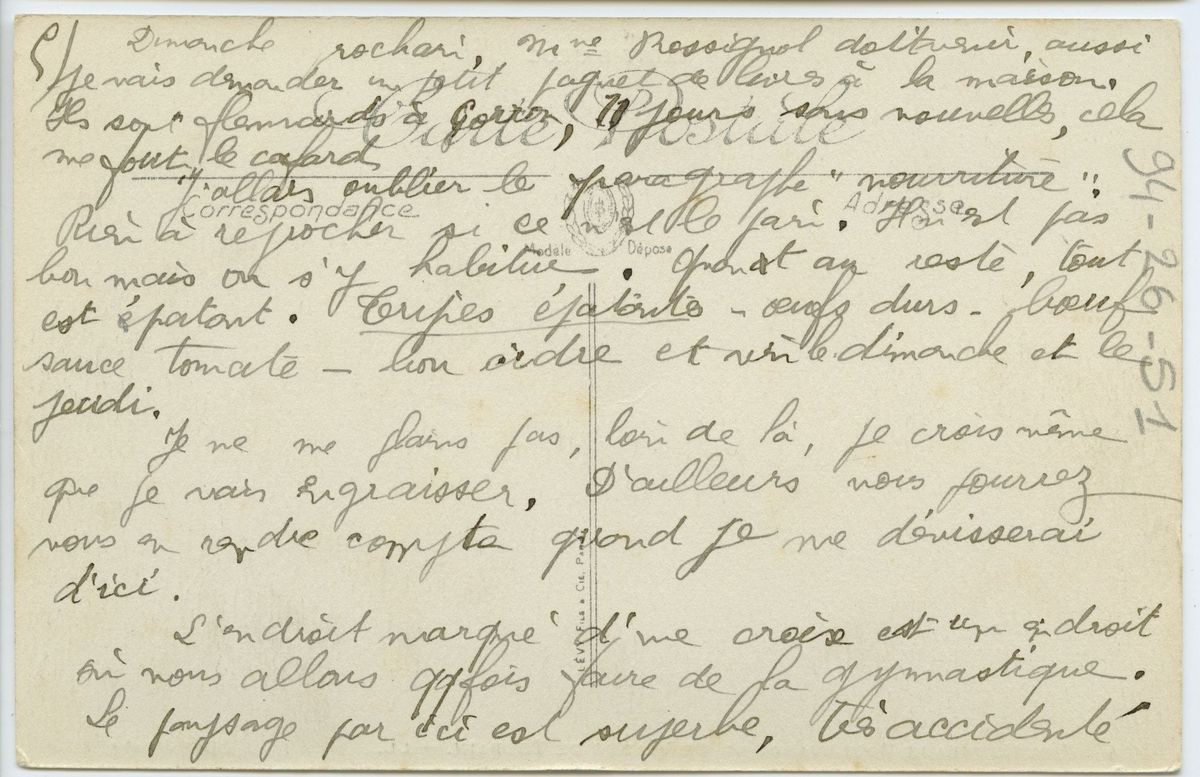 5/ Dimanche prochain, Mme Rossignol doit venir, aussi
je vais demander un petit paquet de livres à la maison.
Ils sont flemmards à Goriez, 11 jours sans nouvelles, cela
me fout le cafard
J'allais oublier le paragraphe "nourriture".
Rien à reprocher si ce n'est le pain. Il n'est pas
bon mais on s'y habitue. Quant au reste, tout
est épatant. Tripes épatantes - œufs durs - bœuf
sauce tomate - bon cidre et vin le dimanche et le
jeudi.
Je ne me plains pas, loin de là, je crois même
que je vais engraisser. D'ailleurs vous pourrez
vous en rendre compte quand je me dévisserai
d'ici.
L'endroit marqué d'une croix est un endroit
où nous allons qqfois faire de la gymnastique.
Le paysage par ici est superbe, très accidenté
Carte Postale
Correspondance
Adresse
Modèle Déposé
LÉVY Fils & Cie, Paris
94-26-51